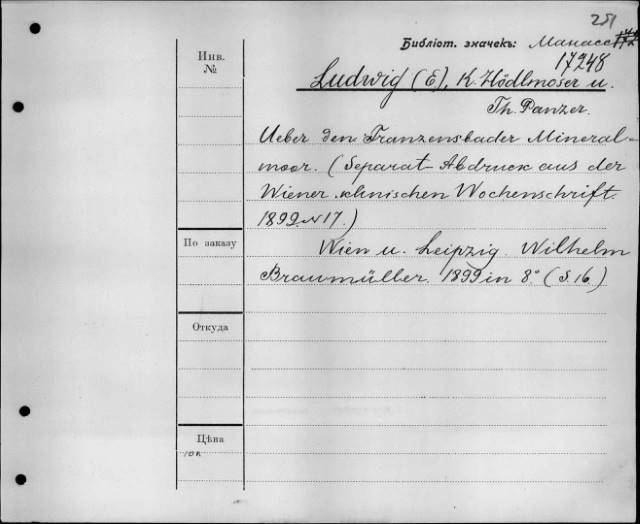 251
Библіот. значекъ: Манасс
17248
Инв.
№
Ludwig (E), K. Hödlmoser u.
Th. Panzer.
Ueber den Franzensbader Mineral-
moor. (Separat-Abdruck aus der
Wiener klinischen Wochenschrift.
1899. N 17.)
По заказу
Wien u. Leipzig. Wilhelm
Braumüller. 1899 in 8° (S. 16.)
Откуда
Цѣна
10 к